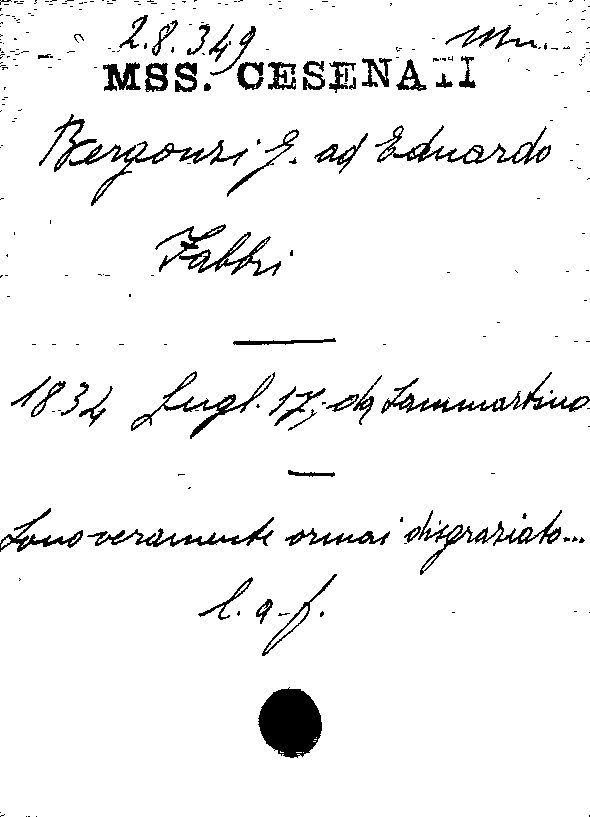 2.8.349
MSS. CESENATI
Bergonzi G. ad Eduardo
Fabbri
1834 Lugl. 17, da Sammartino
Sono veramente ormai disgraziato...
l. a. f.